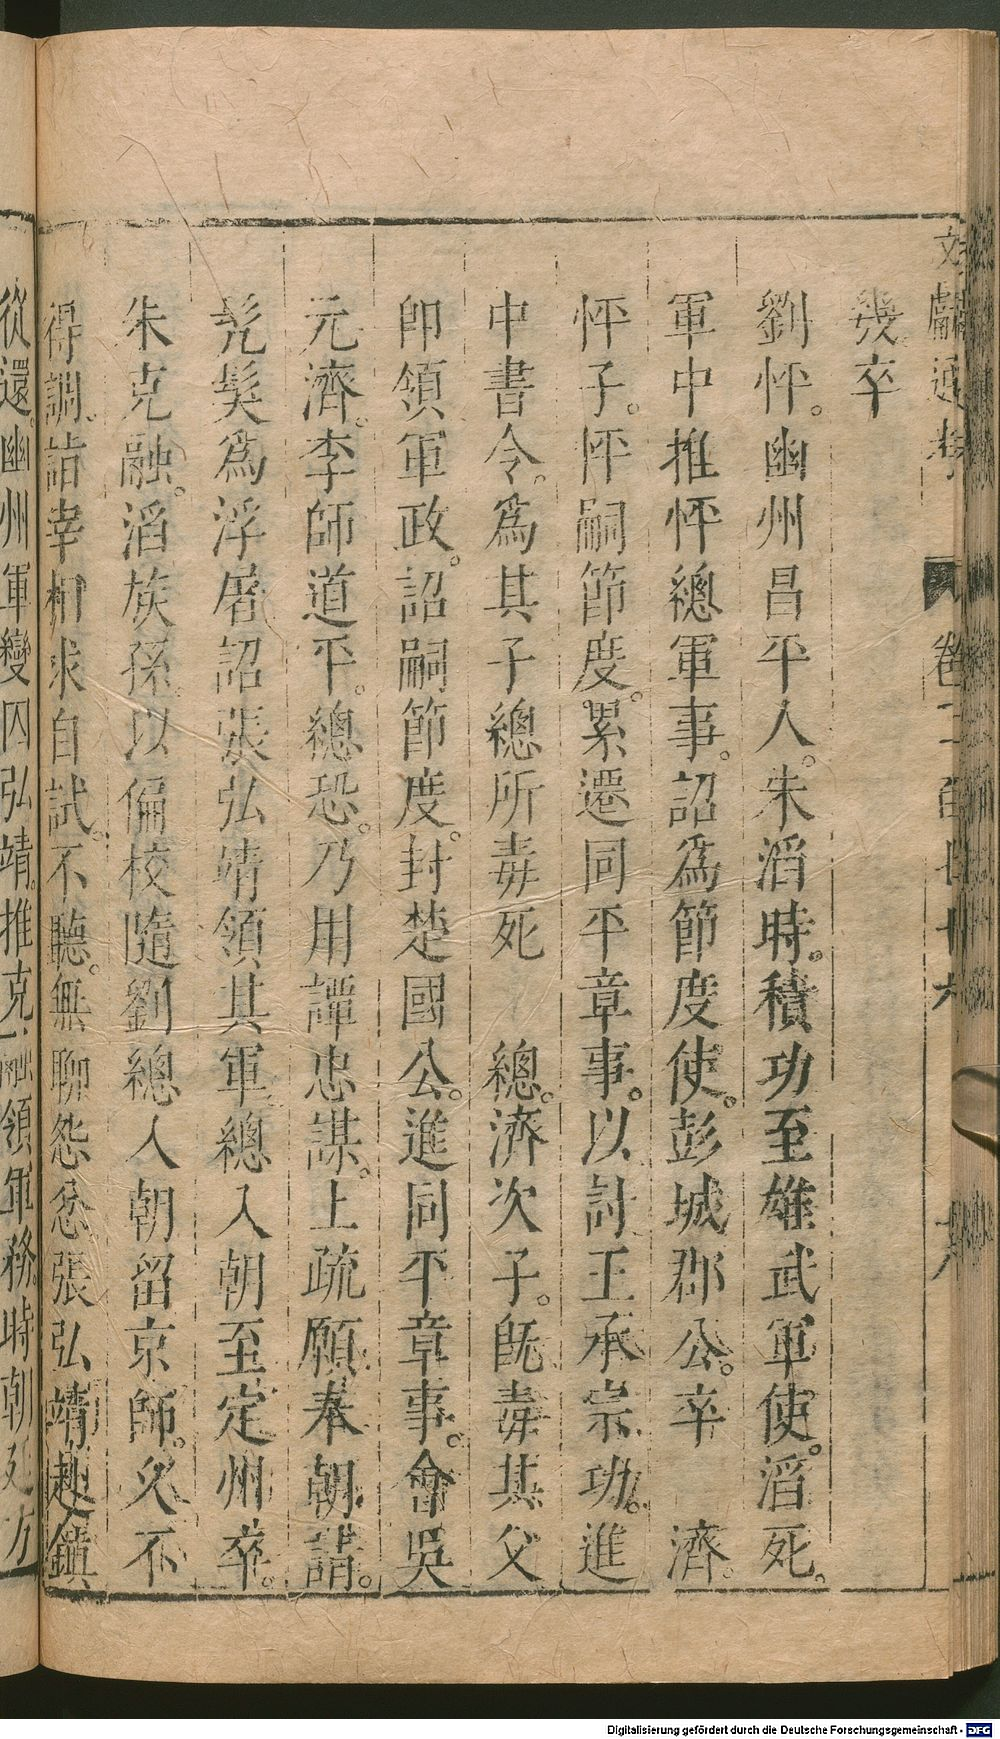 文獻通考 卷二百七十六
幾卒
劉怦。幽州昌平人。朱滔時。積功至雄武軍使。滔死。
軍中推怦總軍事。詔爲節度使。彭城郡公。卒 濟。
怦子。怦嗣節度。累遷同平章事。以討王承宗功。進
中書令。爲其子總所毒死 總。濟次子。旣毒其父
即領軍政。詔嗣節度。封楚國公。進同平章事。會吳
元濟。李師道平。總恐。乃用譚忠謀。上疏願奉朝請。
髠髮爲浮屠詔張弘靖領其軍總入朝至定州卒。
朱克融。滔族孫以偏校隨劉總入朝留京師。久不
得調。詣宰相求自試。不聽。無聊怨忿張弘靖赴鎮
從還。幽州軍變囚弘靖。推克融領軍務。時朝廷方
Digitalisierung gefördert durch die Deutsche Forschungsgemeinschaft - DFG